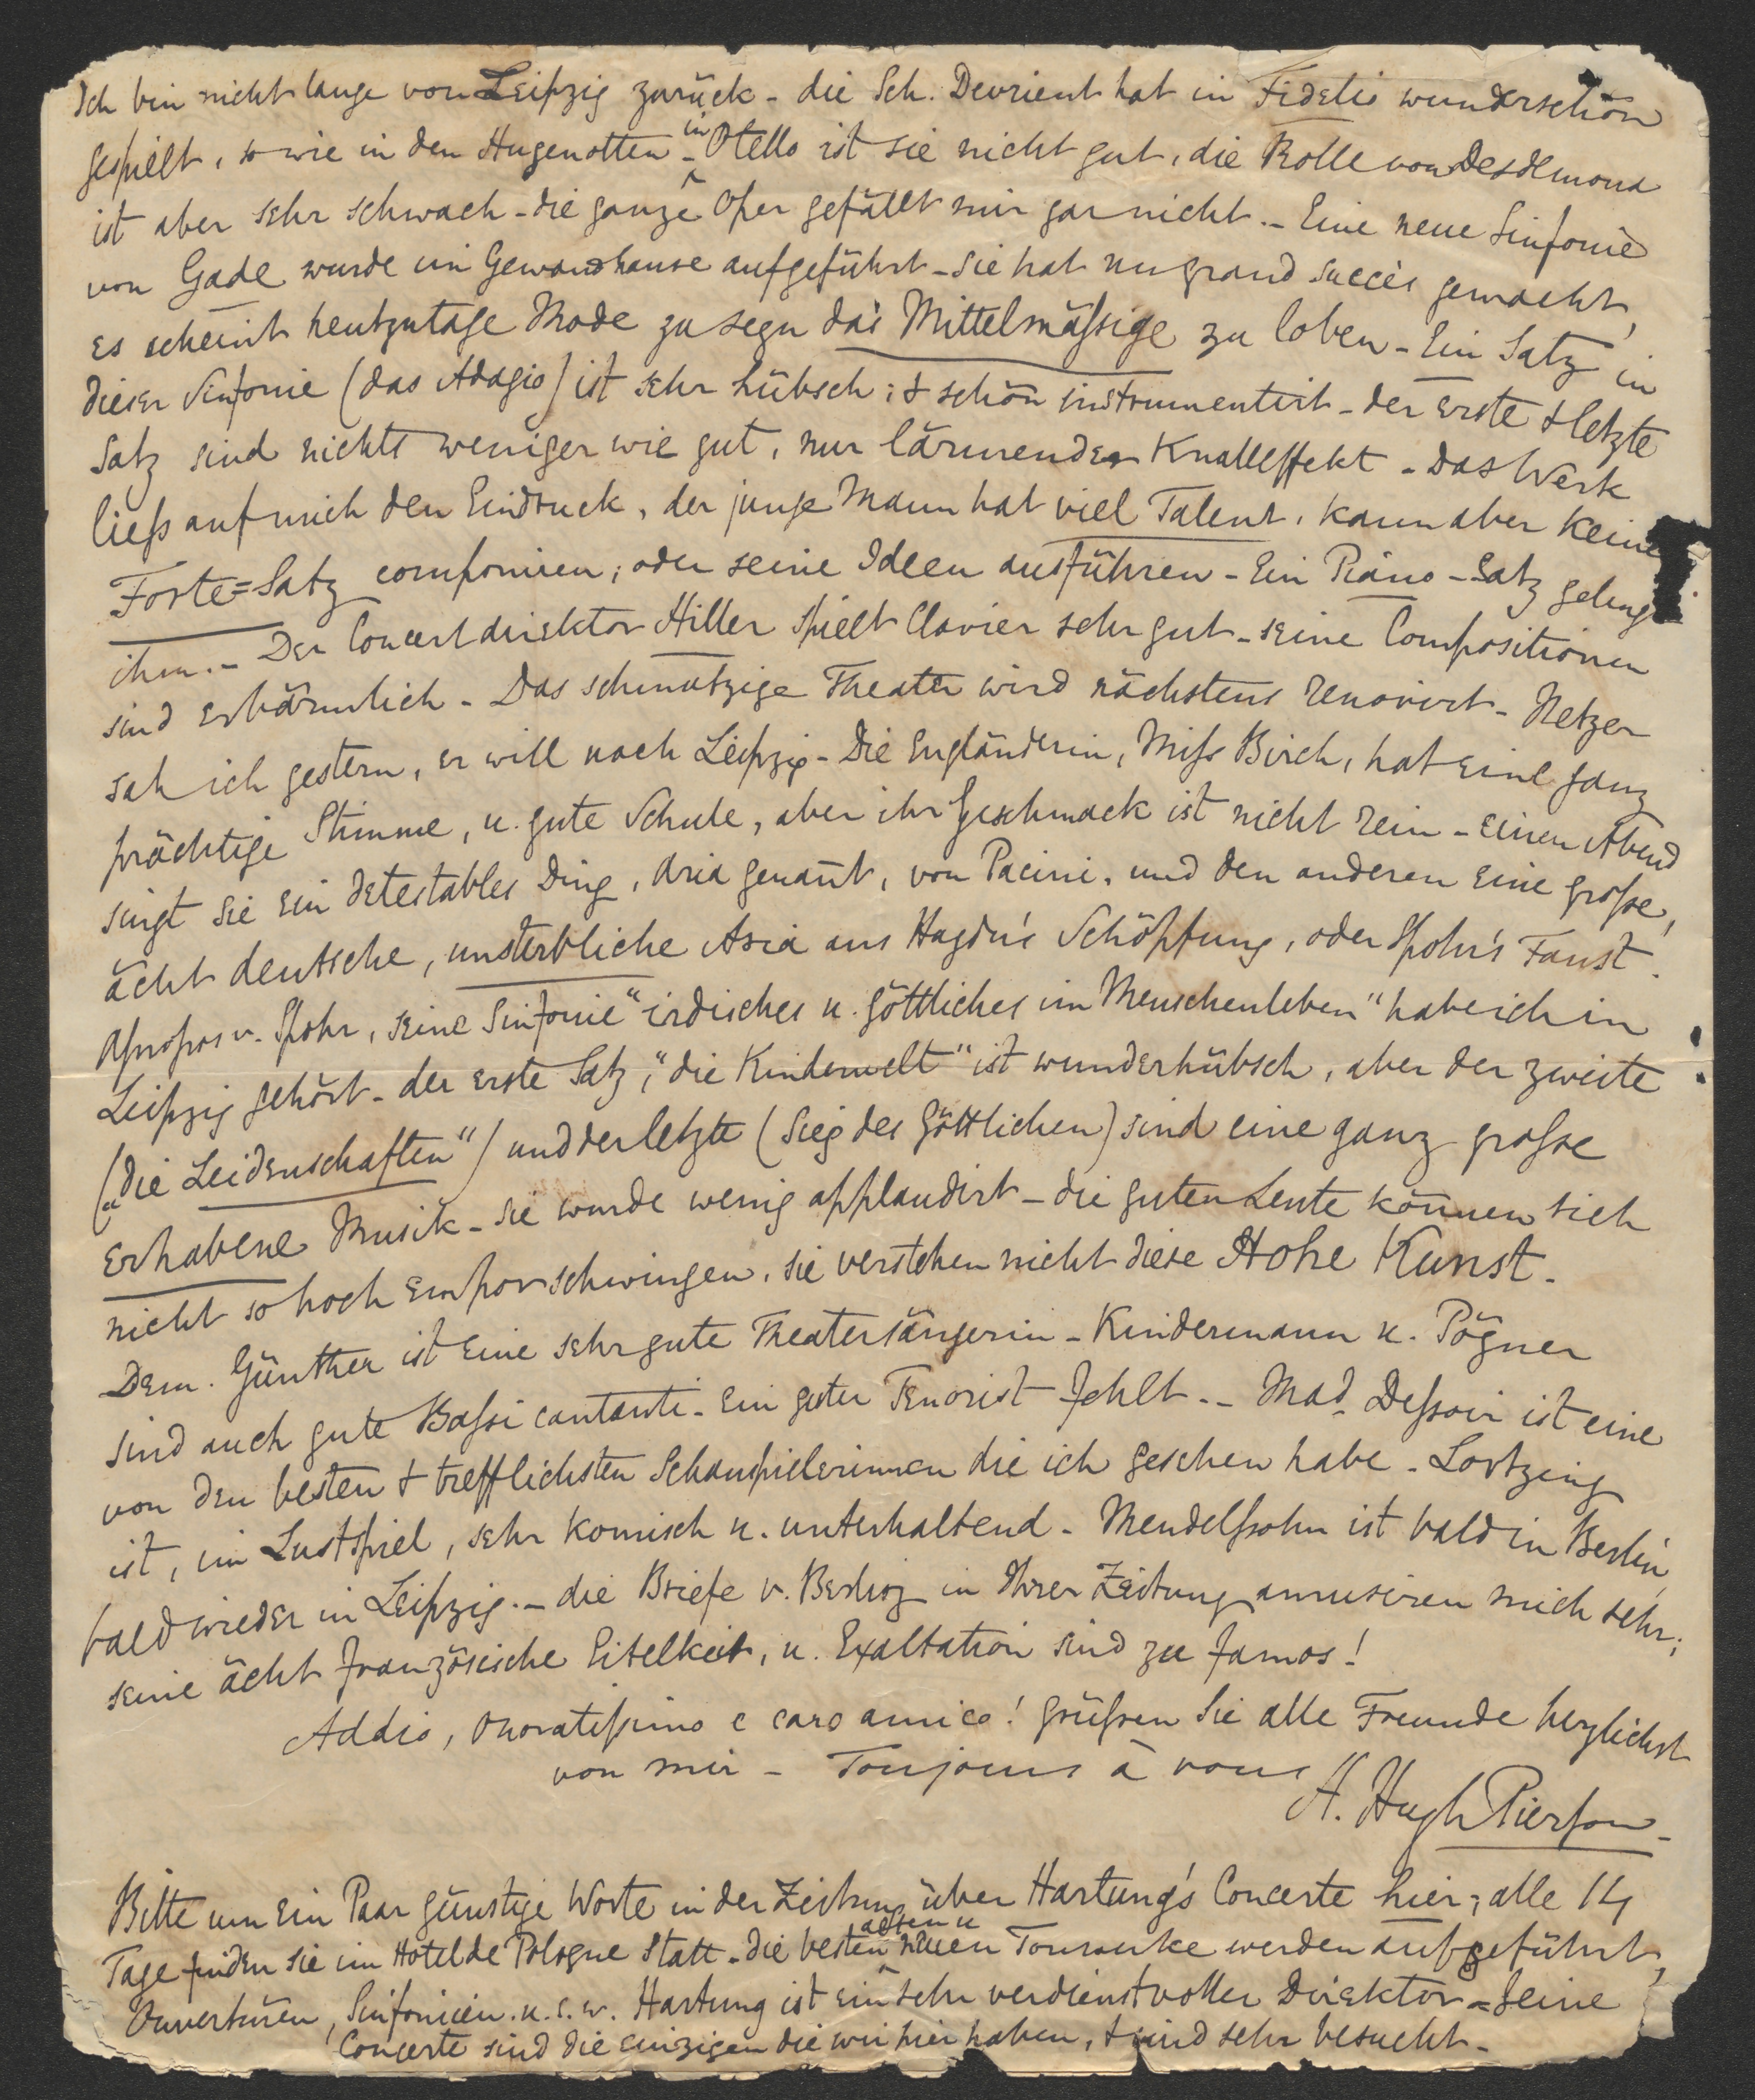 Ich bin nicht lange von Leipzig zurück - die Sch. Devrient hat in Fidelio wunderschön
gespielt, so wie in den Hugenotten - in Otello ist sie nicht gut, die Rolle von Desdemona
ist aber sehr schwach - die ganze Oper gefällt mir gar nicht. - Eine neue Sinfonie
von Gade wurde im Gewandhause aufgeführt - sie hat un grand succès gemacht,
es scheint heutzutage Mode zu seyn das Mittelmäßige zu loben - Ein Satz in
dieser Sinfonie (das Adagio) ist sehr hübsch; & schön instrumentirt - der erste & letzte
Satz sind nichts weniger wie gut, nur lärmender Knalleffekt - Das Werk
ließ auf mich den Eindruck, der junge Mann hat viel Talent, kann aber keine
Forte=Satz componiren, oder seine Ideen ausführen - Ein Piano-Satz gelingt
ihm. - Der Concertdirektor Hiller spielt Clavier sehr gut - seine Compositionen
sind erbärmlich - Das schmutzige Theater wird nächstens renovirt - Netzer
sah ich gestern, er will nach Leipzig - Die Engländerin, Miss Birch, hat eine ganz
prächtige Stimme, u. gute Schule, aber ihr Geschmack ist nicht rein - einen Abend
singt sie ein detestables Ding, Aria genannt, von Pacini, und den anderen eine große,
ächt deutsche, unsterbliche Aria aus Haydn's Schöpfung, oder Spohr's Faust.
Apropos v. Spohr, seine Sinfonie "irdisches u. göttliches im Menschenleben" habe ich in
Leipzig gehört - der erste Satz, "die Kinderwelt" ist wunderhübsch, aber der zweite
("die Leidenschaften") und der letzte (Sieg des Göttlichen) sind eine ganz große
erhabene Musik - sie wurde wenig applaudirt - die guten Leute können sich
nicht so hoch emporschwingen, sie verstehen nicht diese Hohe Kunst.
Dem. Günther ist eine sehr gute Theatersängerin - Kindermann u. Pögner
sind auch gute Bassi cantanti - ein guter Tenorist fehlt. - Mad. Dessoir ist eine
von den besten & trefflichsten Schauspielerinnen die ich gesehen habe - Lortzing
ist, im Lustspiel, sehr komisch u. unterhaltend - Mendelssohn ist bald in Berlin,
bald wieder in Leipzig. - die Briefe v. Berlioz in Ihrer Zeitung amusiren mich sehr;
seine ächt französische Eitelkeit, u. Exaltation sind zu famos!
Addio, onoratissimo e caro amico! Grüßen Sie alle Freunde herzlichst
von mir - Toujours à vous
H. Hugh Pierson -
Bitte um ein Paar günstige Worte in der Zeitung über Hartung's Concerte hier; alle 14
Tage finden sie im Hotel de Pologne Statt - die besten alten u neuen Tonwerke werden aufgeführt,
Ouvertüren, Sinfonieen u.s.w. Hartung ist ein sehr verdienstvoller Direktor - Seine
Concerte sind die einzigen die wir hier haben, & sind sehr besucht -